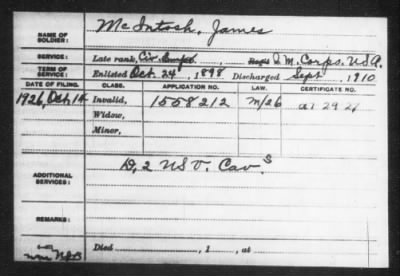 NAME OF SOLDIER: McIntosh, James
SERVICE: Late rank, Q.M. Corps, U.S.A.
TERM OF SERVICE: Enlisted Oct. 24, 1898, Discharged Sept, 1910
DATE OF FILING. CLASS. APPLICATION NO. LAW. CERTIFICATE NO.
1926, Oct 14 Invalid, 1558212 M/26
Widow,
Minor,
ADDITIONAL SERVICES: D, 2 US V. Cav.
REMARKS:
Died , 1 , at